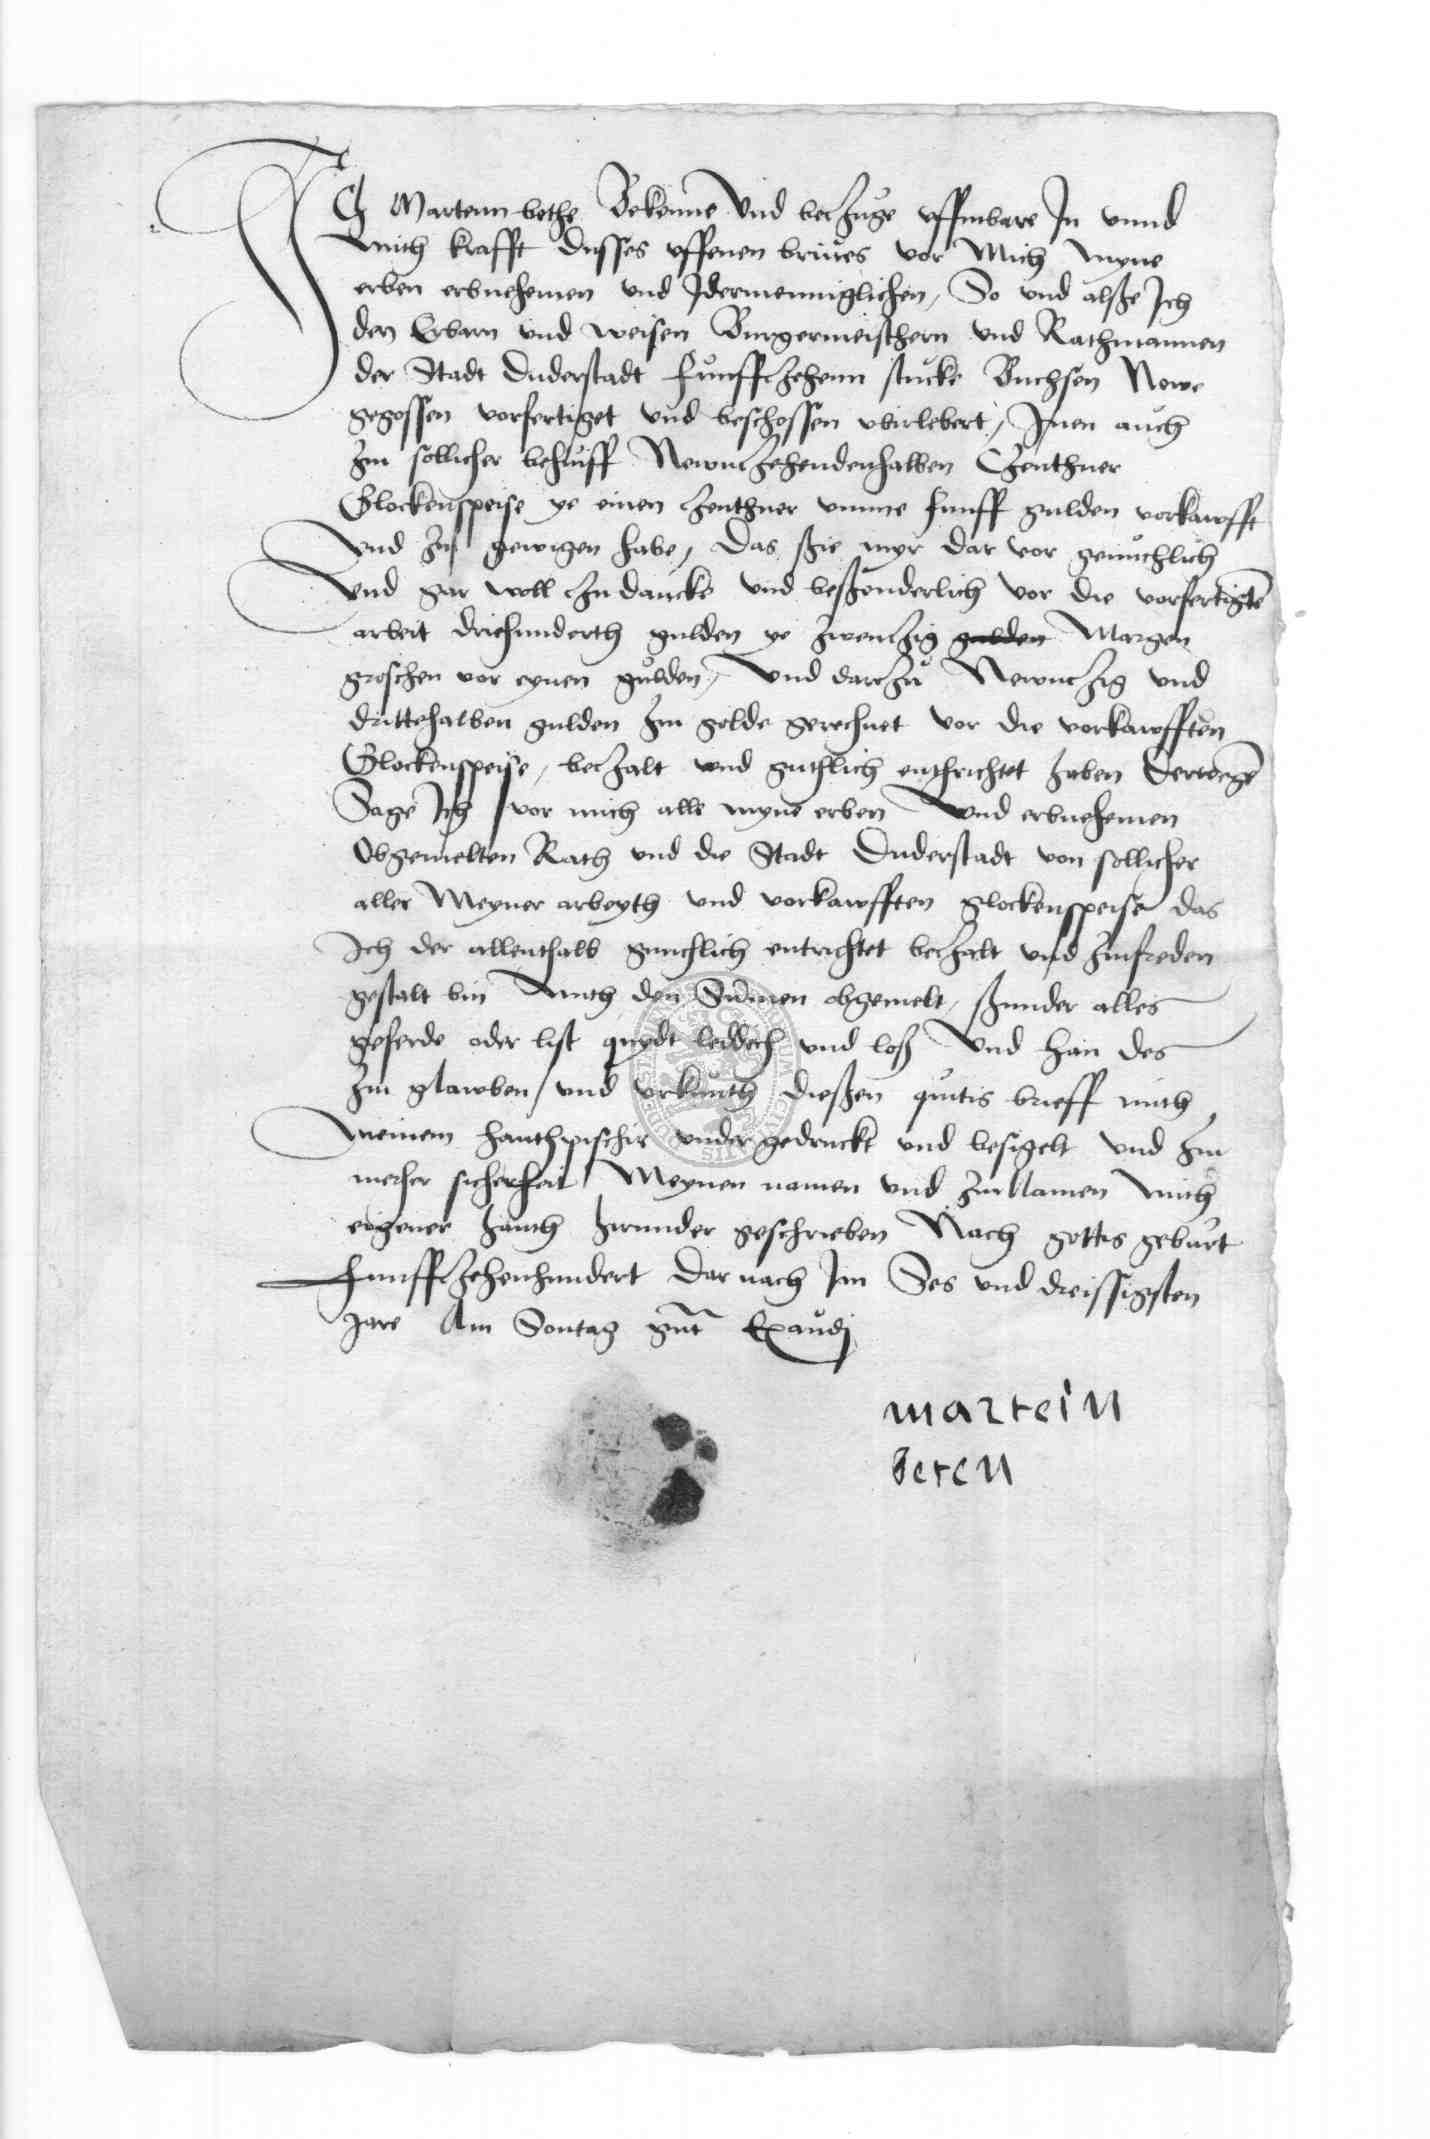 Ich Martenn bethe Bekenne Vnd beczuge uffinbare In vnnd
mith krafft dusses uffenen brieues vor Mich myne
erben erbnehemen vnd Idermenniglichen, So vnd alsße Ich
den Erbarn vnd weisen Burgermeisthern vnd Rathmannen
der Stadt Duderstadt funffczehenn stucke Buchsen Nowe
gegossen vorfertiget vnd beschossen vbirlebert, Inen auch
Zu sollicher behuff Newnczehendenhalben Czenthner
Glockenspeise ye einen czenthner vmme funff gulden vorkawfft
Vnd Zu gewigen habe, Das ßie myr dar vor genuchlich
Vnd gar woll czu dancke vnd beßonderlich vor die vorfertigte
arbeit driehunderth gulden ye zwenczig gulden Margen
groschen vor eynen gulden, Vnd darczu Newnczig vnd
drittehalben gulden Zu golde gerechnet vor die vorkawfften
Glockenspeise, beczalt vnd guthlich enthrichtet haben Derwege
Sage Ich vor mich alle myne erben Vnd erbnehemen
Obgemelten Rath vnd die Stadt Duderstadt von sollicher
aller Meyner arbeyth vnd vorkawfften glockenspeise das
Ich der allenthalb gnuchlich entrichtet beczalt vnd Zufreden
gestalt bin Mith den Summen obgemelt, ßunder alles
geferde oder list quydt leddich vnd loß Vnd han des
Zu glawben vnd vrkunth dießen quitis brieff mith
meinem hanthpischir vnder gedruckt vnd besigelt vnd Zu
merher sicherheit Meynen namen vnd ZuNamen Mith
eigener hanth hirunder geschrieben Nach gottis geburt
funffczehenhundert Dar nach Im Ses vnd dreissigsten
Jare Am Sontag gnt Exaudj
martein
beten